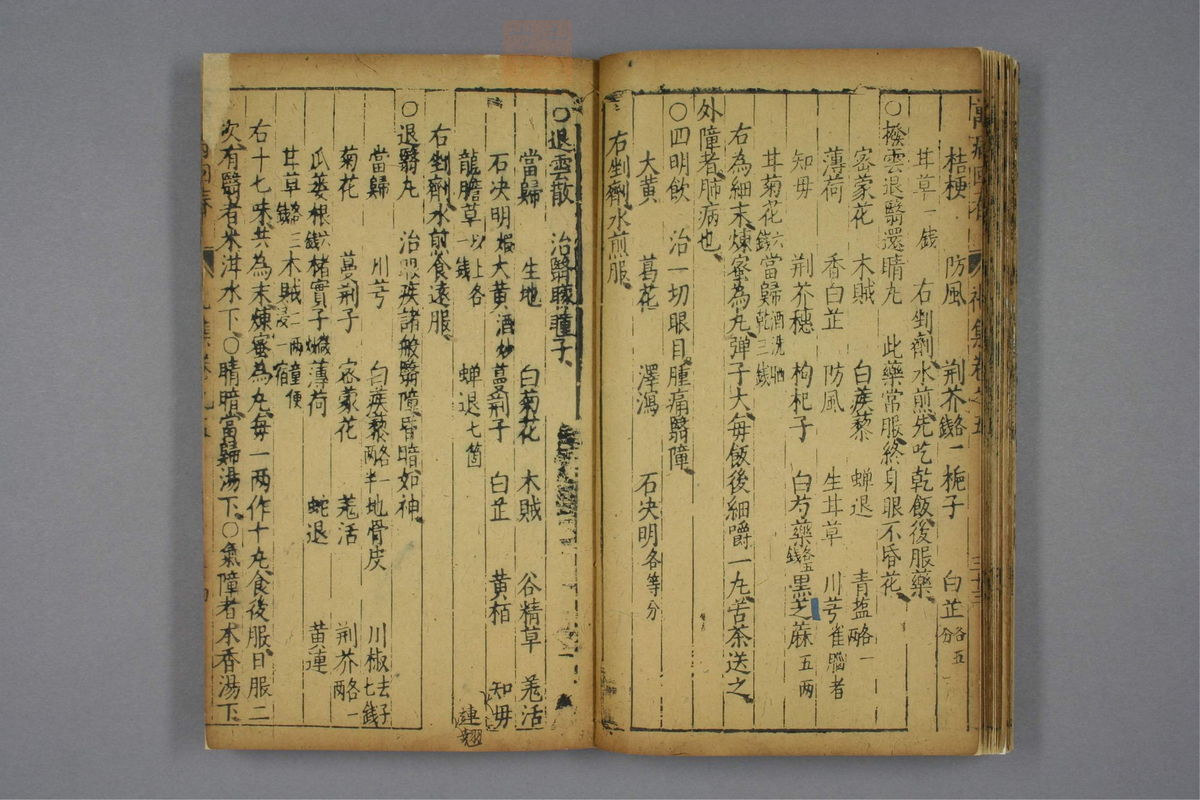 桔梗 防風 荊芥各一錢 梔子 白芷各五分
甘草一錢 右剉劑水煎先吃乾飯後服藥
○撥雲退翳還睛丸 此藥常服終身眼不昏花
密蒙花 木賊 白蒺藜 蟬退 青盐各一兩
薄荷 香白芷 防風 生甘草 川芎雀腦者
知毋 荊芥穗 枸杞子 白芍藥各五錢 黒芝蔴五两
甘菊花六錢 當歸酒洗晒乾三錢
右為細末煉蜜為丸弹子大毎飯後細嚼一丸苦茶送之
外障者肺病也
○四明飲 治一切眼目腫痛翳障
大黄 葛花 澤瀉 石决明各等分
右剉劑水煎服
○退雲散 治翳矇瞳子
當歸 生地 白菊花 木賊 谷精草 羗活
石决明煅 大黄酒炒 蔓荊子 白芷 黄栢 知毋
龍膽草以上各一錢 蝉退七箇 連翹
右剉劑水煎食遠服
○退翳丸 治眼疾諸般翳障昏暗如神
當歸 川芎 白蒺藜各一兩半 地骨皮 川椒去子七錢
菊花 蔓荊子 密蒙花 羗活 荆芥各一兩
瓜蔞根六錢 楮實子 薄荷 蛇退 黄連
甘草各二錢 木賊一两二童便浸一宿
右十七味共為末煉蜜為丸毎一两作十丸食後服日服二
次有翳者米泔水下○睛暗當歸湯下○氣障者木香湯下